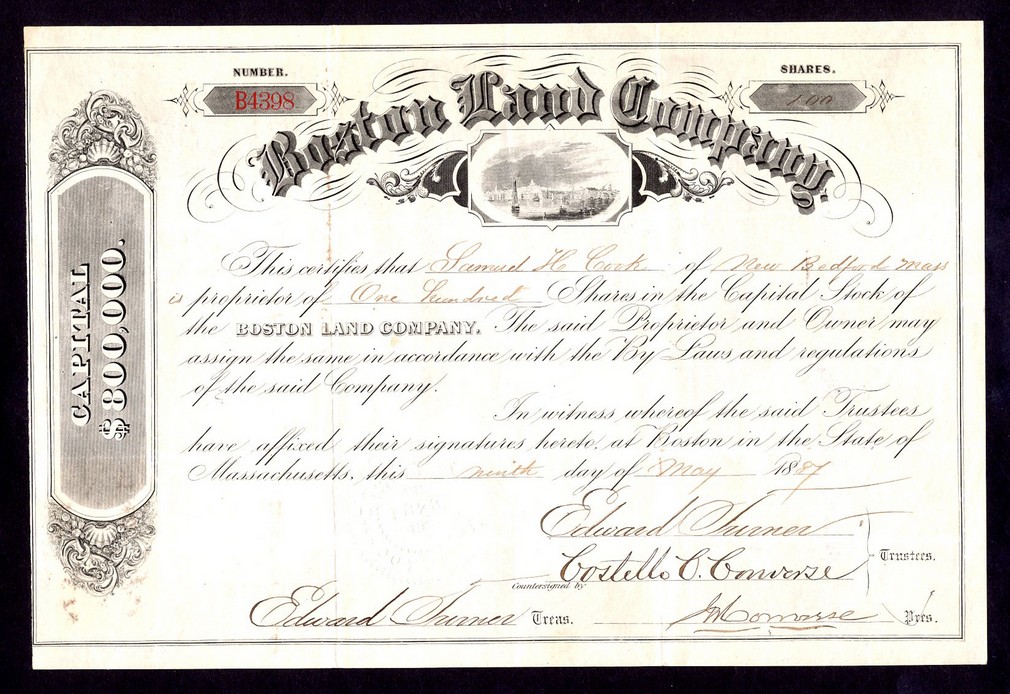 NUMBER.
B4398
SHARES.
100
Boston Land Company.
CAPITAL
$800,000.
This certifies that Samuel H Cook of New Bedford Mass
is proprietor of One Hundred Shares in the Capital Stock of
the BOSTON LAND COMPANY. The said Proprietor and Owner may
assign the same in accordance with the By Laws and regulations
of the said Company.
In witness whereof the said Trustees
have affixed their signatures hereto, at Boston in the State of
Massachusetts, this ninth day of May 1887
Edward Turner
Costello C. Converse
Trustees.
Countersigned by
Edward Turner Treas.
Converse Pres.